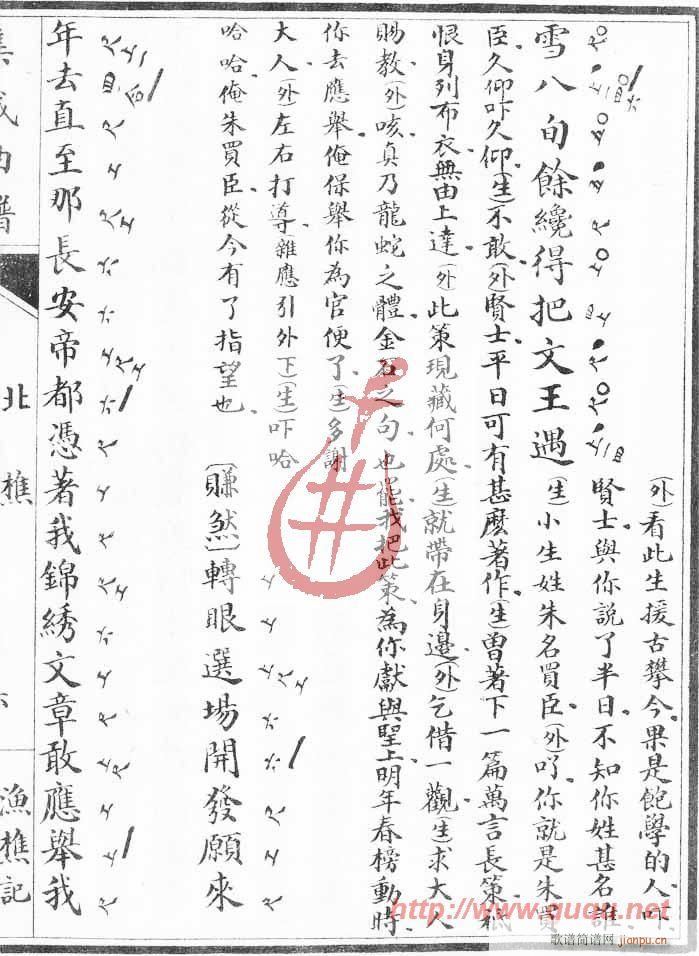 雪八旬餘纔得把文王遇
(外)看此生援古攀今果是飽學的人吓
賢士與你説了半日不知你姓甚名誰
(生)小生姓朱名買臣(外)吖你就是朱買
臣久仰吓久仰(生)不敢(外)賢士平日可有甚麽著作(生)曾著下一篇萬言長策
恨身列布衣無由上達(外)此策現藏何處(生)就帶在身邊(外)乞借一觀(生)求大人
賜教(外)咳真乃龍蛇之體金石之句也能我把此策為你獻與聖上明年春榜動時
你去應舉俺保舉你為官便了(生)多謝
大人(外)左右打導(雜應引外下)(生)吓哈
哈哈俺朱買臣從今有了指望也
(賺煞)轉眼選場開發願來
年去直至那長安帝都憑著我錦綉文章敢應舉我
集成曲譜
北樵
漁樵記
http://www.ququ.net
歌谱简谱网
jianpu.cn